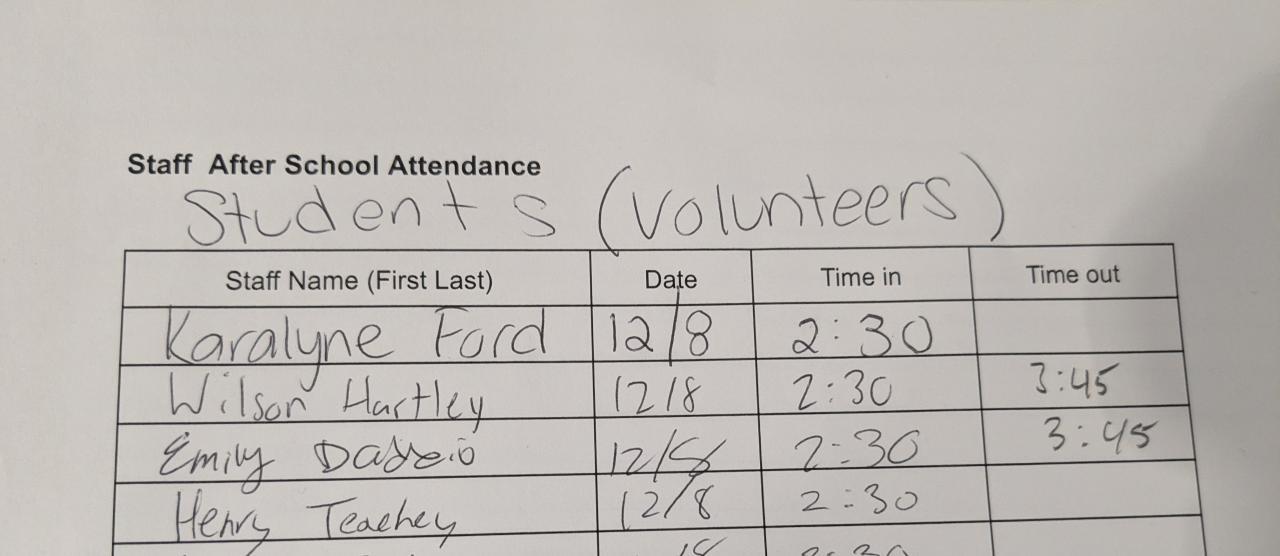 Staff After School Attendance
Students (Volunteers)
Staff Name (First Last) Date Time in Time out
Karalyne Ford 12/8 2:30
Wilson Hartley 12/8 2:30 3:45
Emily 12/8 2:30 3:45
Henry Teachey 12/8 2:30